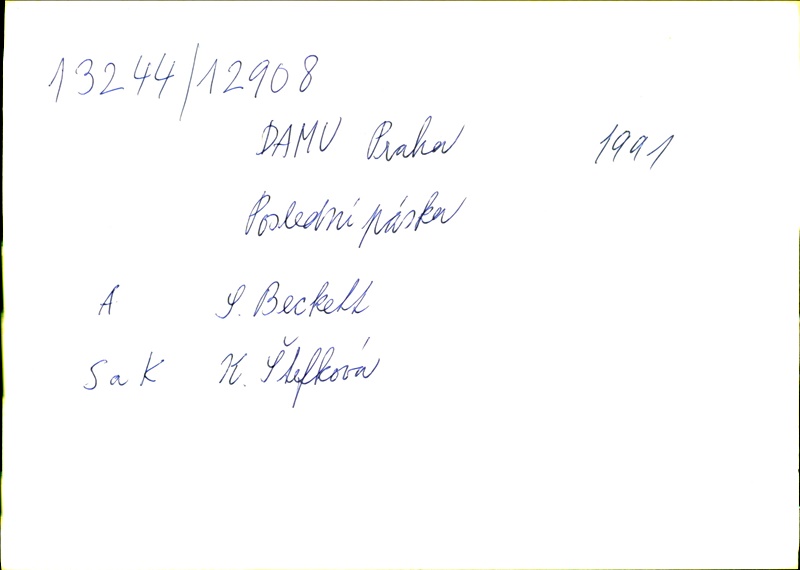 13244/12908
DAMU Praha 1991
Poslední páska
A S. Beckett
S a K K. Štefková